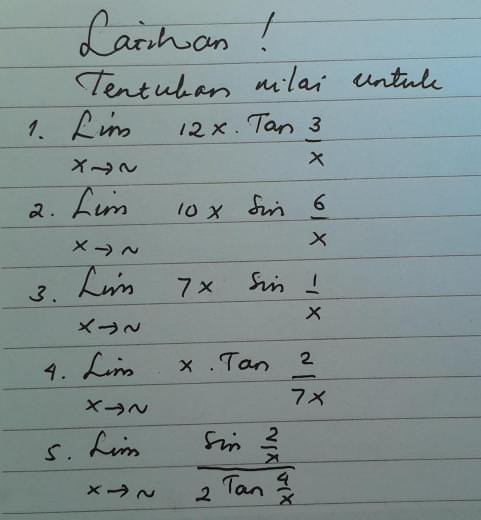 Latihan !
Tentukan nilai untuk
1. Lim 12x . Tan 3/x
x→~
2. Lim 10x Sin 6/x
x→~
3. Lim 7x Sin 1/x
x→~
4. Lim x . Tan 2/7x
x→~
5. Lim Sin 2/x / 2 Tan 4/x
x→~